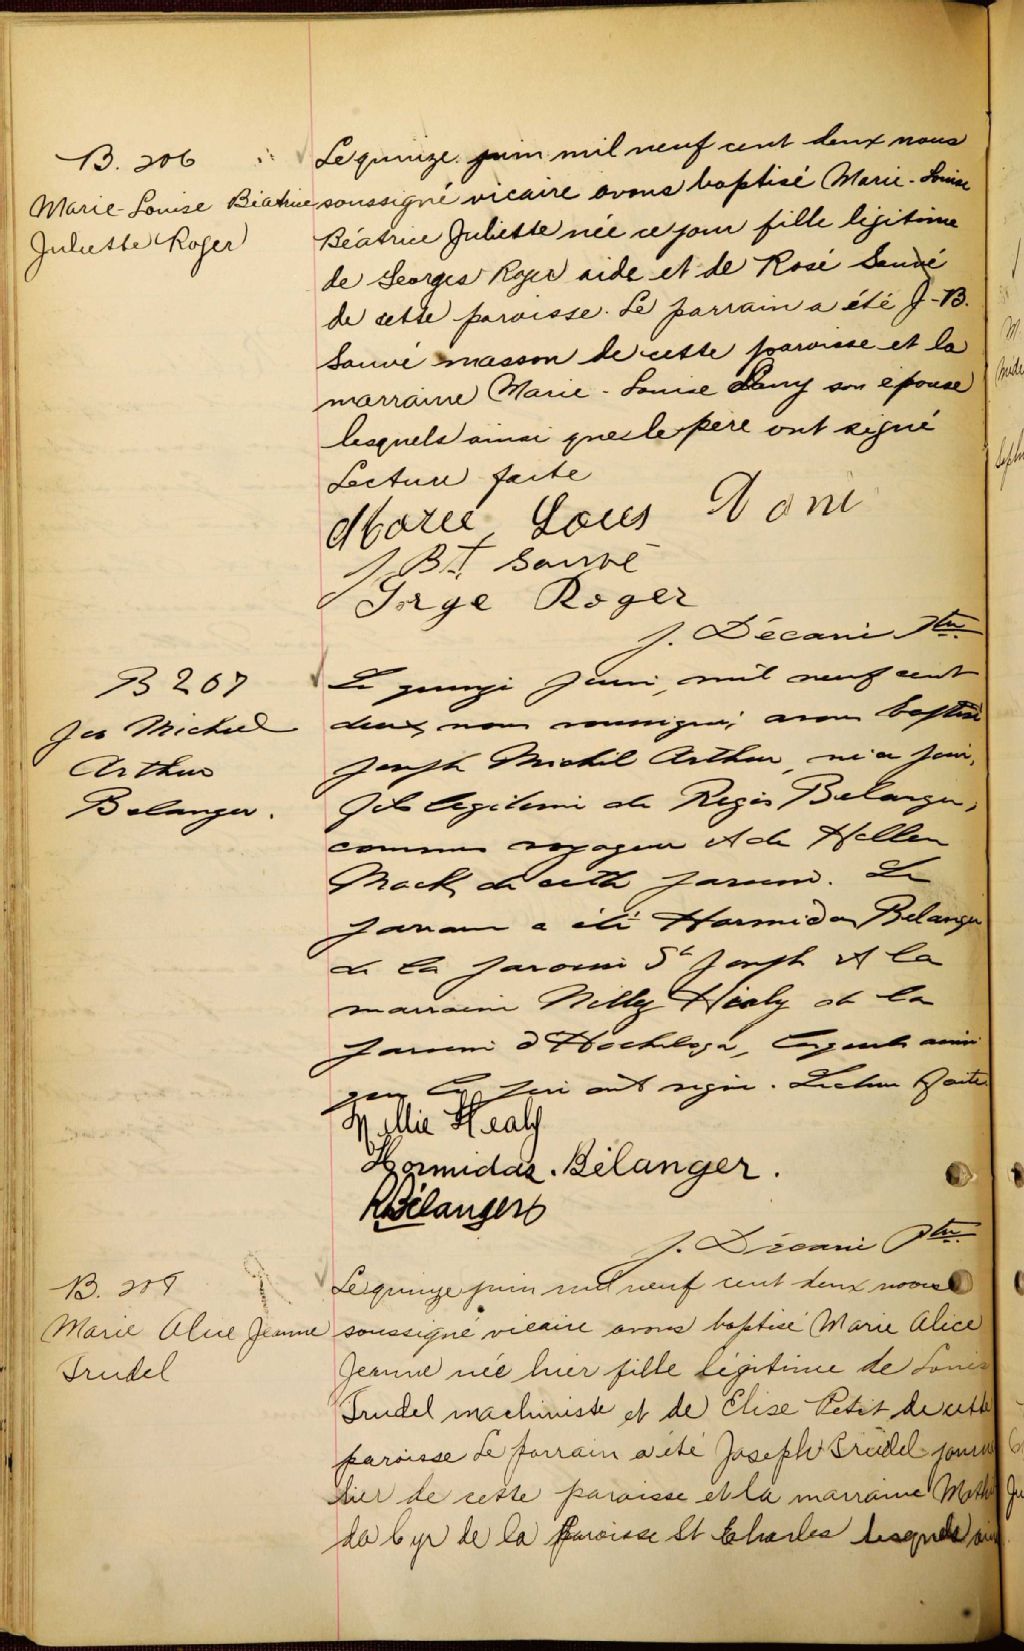 B. 206
Marie-Louise Béatrice
Juliette Roger
Le quinze juin mil neuf cent deux nous
soussigné vicaire avons baptisé Marie-Louise
Béatrice Juliette née ce jour fille légitime
de Georges Roger aide et de Rosé Sauvé
de cette paroisse. Le parrain a été J-B.
Sauvé masson de cette paroisse et la
marraine Marie-Louise son épouse
lesquels ainsi que le père ont signé
Lecture faite
Marie Loues
J Bt Sauvé
Gorge Roger
J. Décarie Ptre
B 207
Jos Michael
Arthur
Belanger.
Le quinze Juin, mil neuf cent
deux, nous soussigné, avons baptisé
Joseph Michel Arthur, né ce jour,
fils légitime de Regis Belanger,
commis voyageur et de Hellen
Mack, de cette paroisse. Le
parrain a été Hormidas Belanger
de la paroisse St Joseph et la
marraine Nelly Healy de la
paroisse d'Hochelaga, lesquels ainsi
que le père ont signé. Lecture faite.
Nellie Healy
Hormidas. Bélanger.
R Bélanger
J. Décarie Ptre
B. 208
Marie Alice Jeanne
Trudel
Le quinze juin mil neuf cent deux nous
soussigné vicaire avons baptisé Marie Alice
Jeanne née hier fille légitime de Louis
Trudel machiniste et de Elise Petit de cette
paroisse Le parrain a été Joseph Trudel journa
lier de cette paroisse et la marraine Mathil
da Cyr de la paroisse St Charles lesquels ain